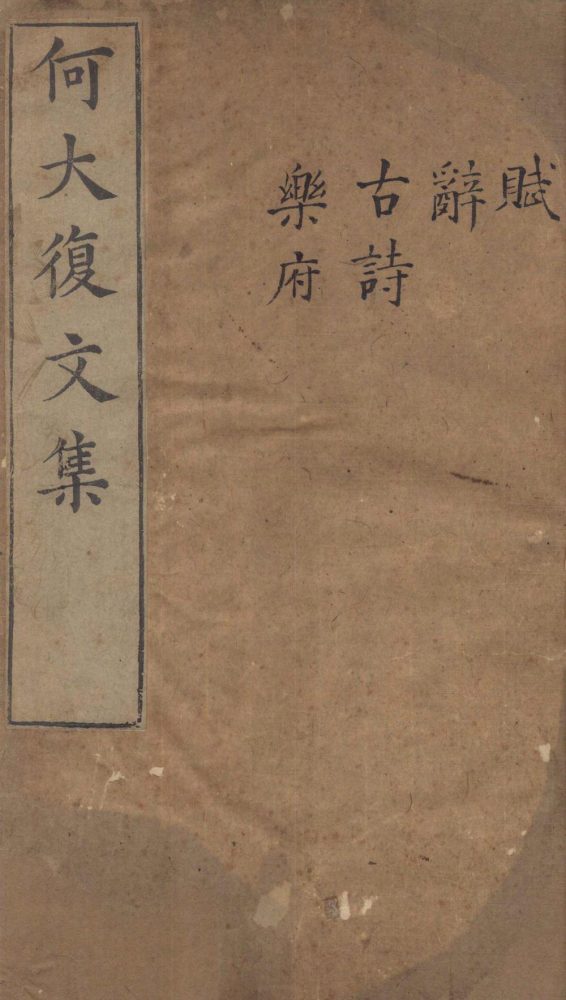 賦
辭
古詩
樂府
何大復文集